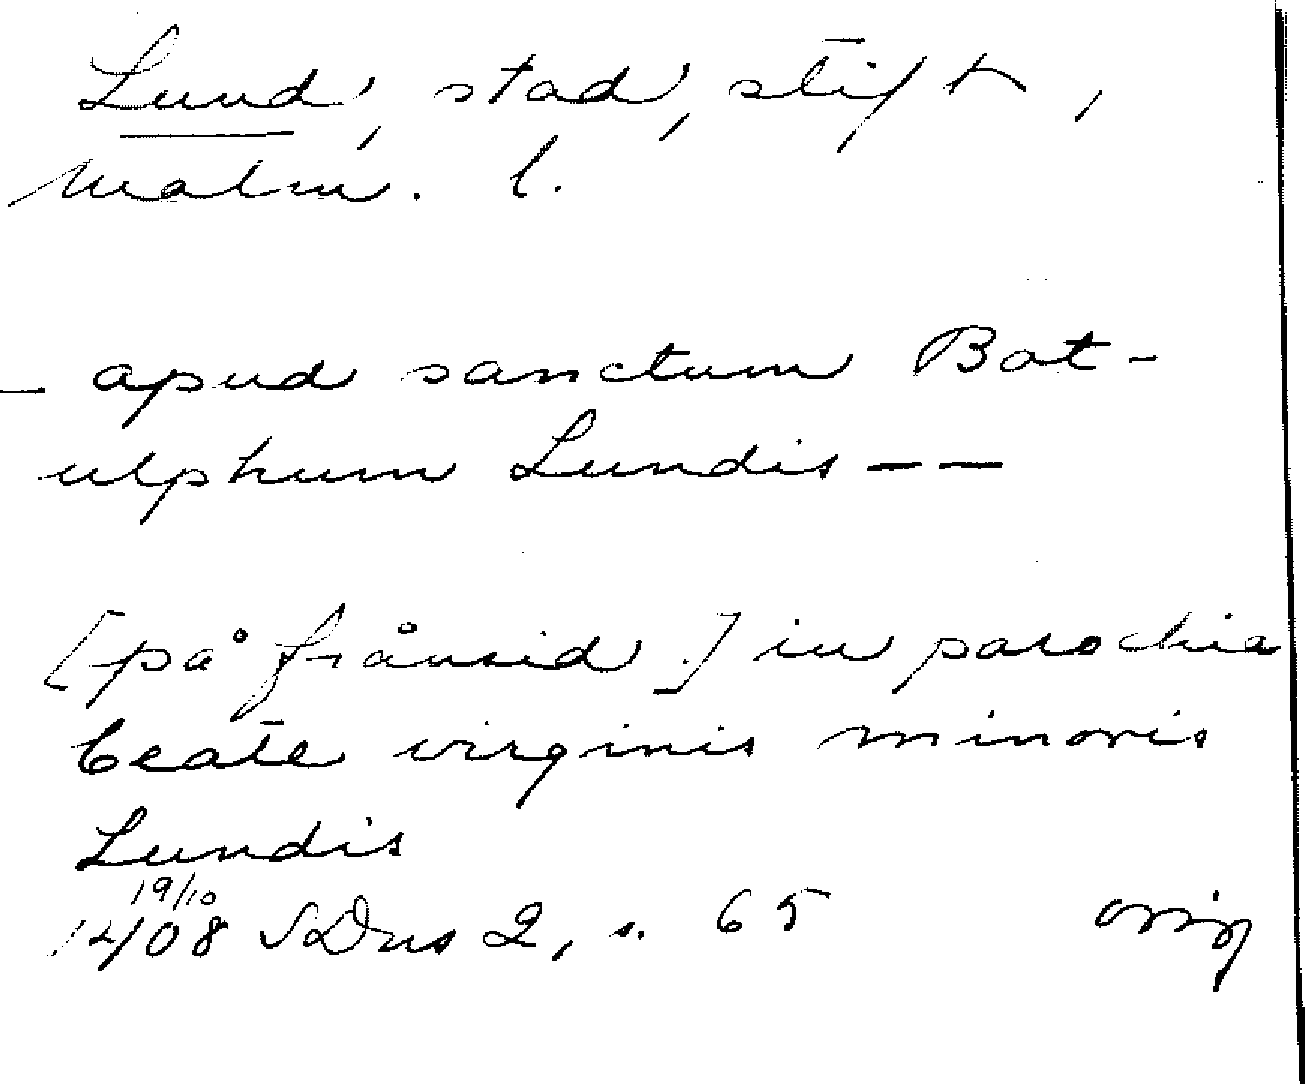 Lund, stad, stift,
Malm. l.
- apud sanctum Bot-
ulphum Lundis - -
[på frånsid.] in parochia
beate virginis minoris
Lundis
19/10
1408 SDns 2, s. 65 orig